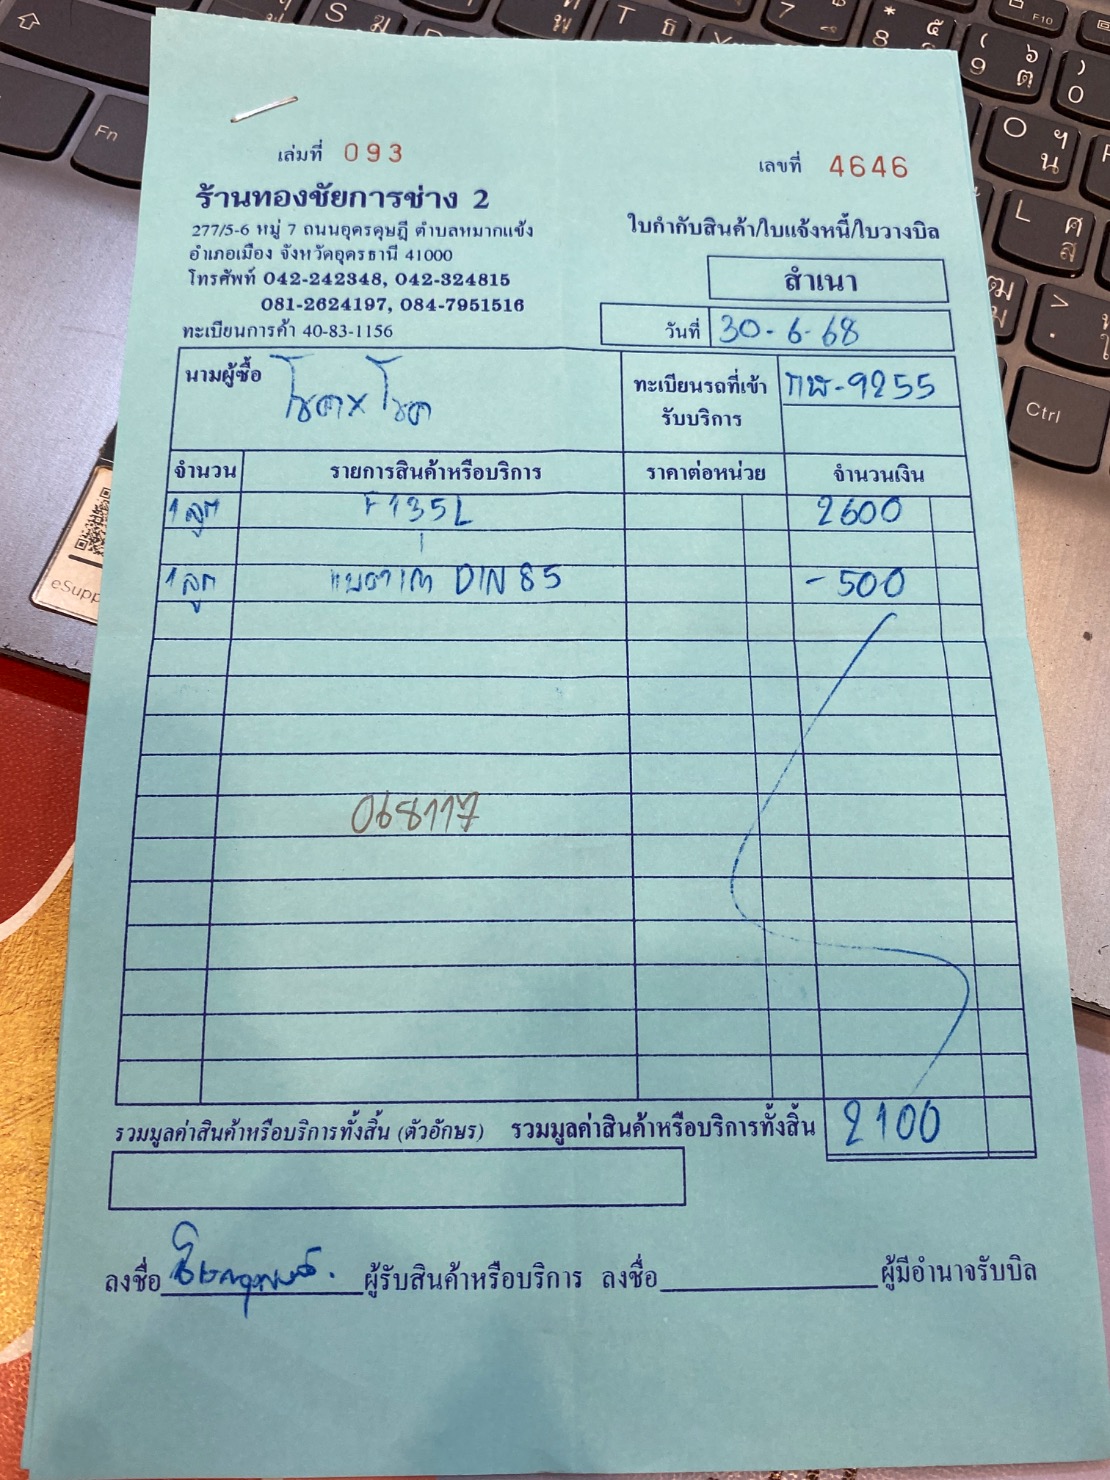 เล่มที่ 093
เลขที่ 4646
ร้านทองชัยการช่าง 2
277/5-6 หมู่ 7 ถนนอุดรดุษฎี ตำบลหมากแข้ง
อำเภอเมือง จังหวัดอุดรธานี 41000
โทรศัพท์ 042-242348, 042-324815
081-2624197, 084-7951516
ทะเบียนการค้า 40-83-1156
ใบกำกับสินค้า/ใบแจ้งหนี้/ใบวางบิล
สำเนา
วันที่ 30-6-68
นามผู้ซื้อ โชค x โชค
ทะเบียนรถที่เข้า
รับบริการ
-9255
จำนวน รายการสินค้าหรือบริการ ราคาต่อหน่วย จำนวนเงิน
1 ลูก F135L 2600
1 ลูก DIN 85 -500
068117
รวมมูลค่าสินค้าหรือบริการทั้งสิ้น (ตัวอักษร) รวมมูลค่าสินค้าหรือบริการทั้งสิ้น 2100
ลงชื่อ ผู้รับสินค้าหรือบริการ ลงชื่อ ผู้มีอำนาจรับบิล
Fn
Ctrl
F10